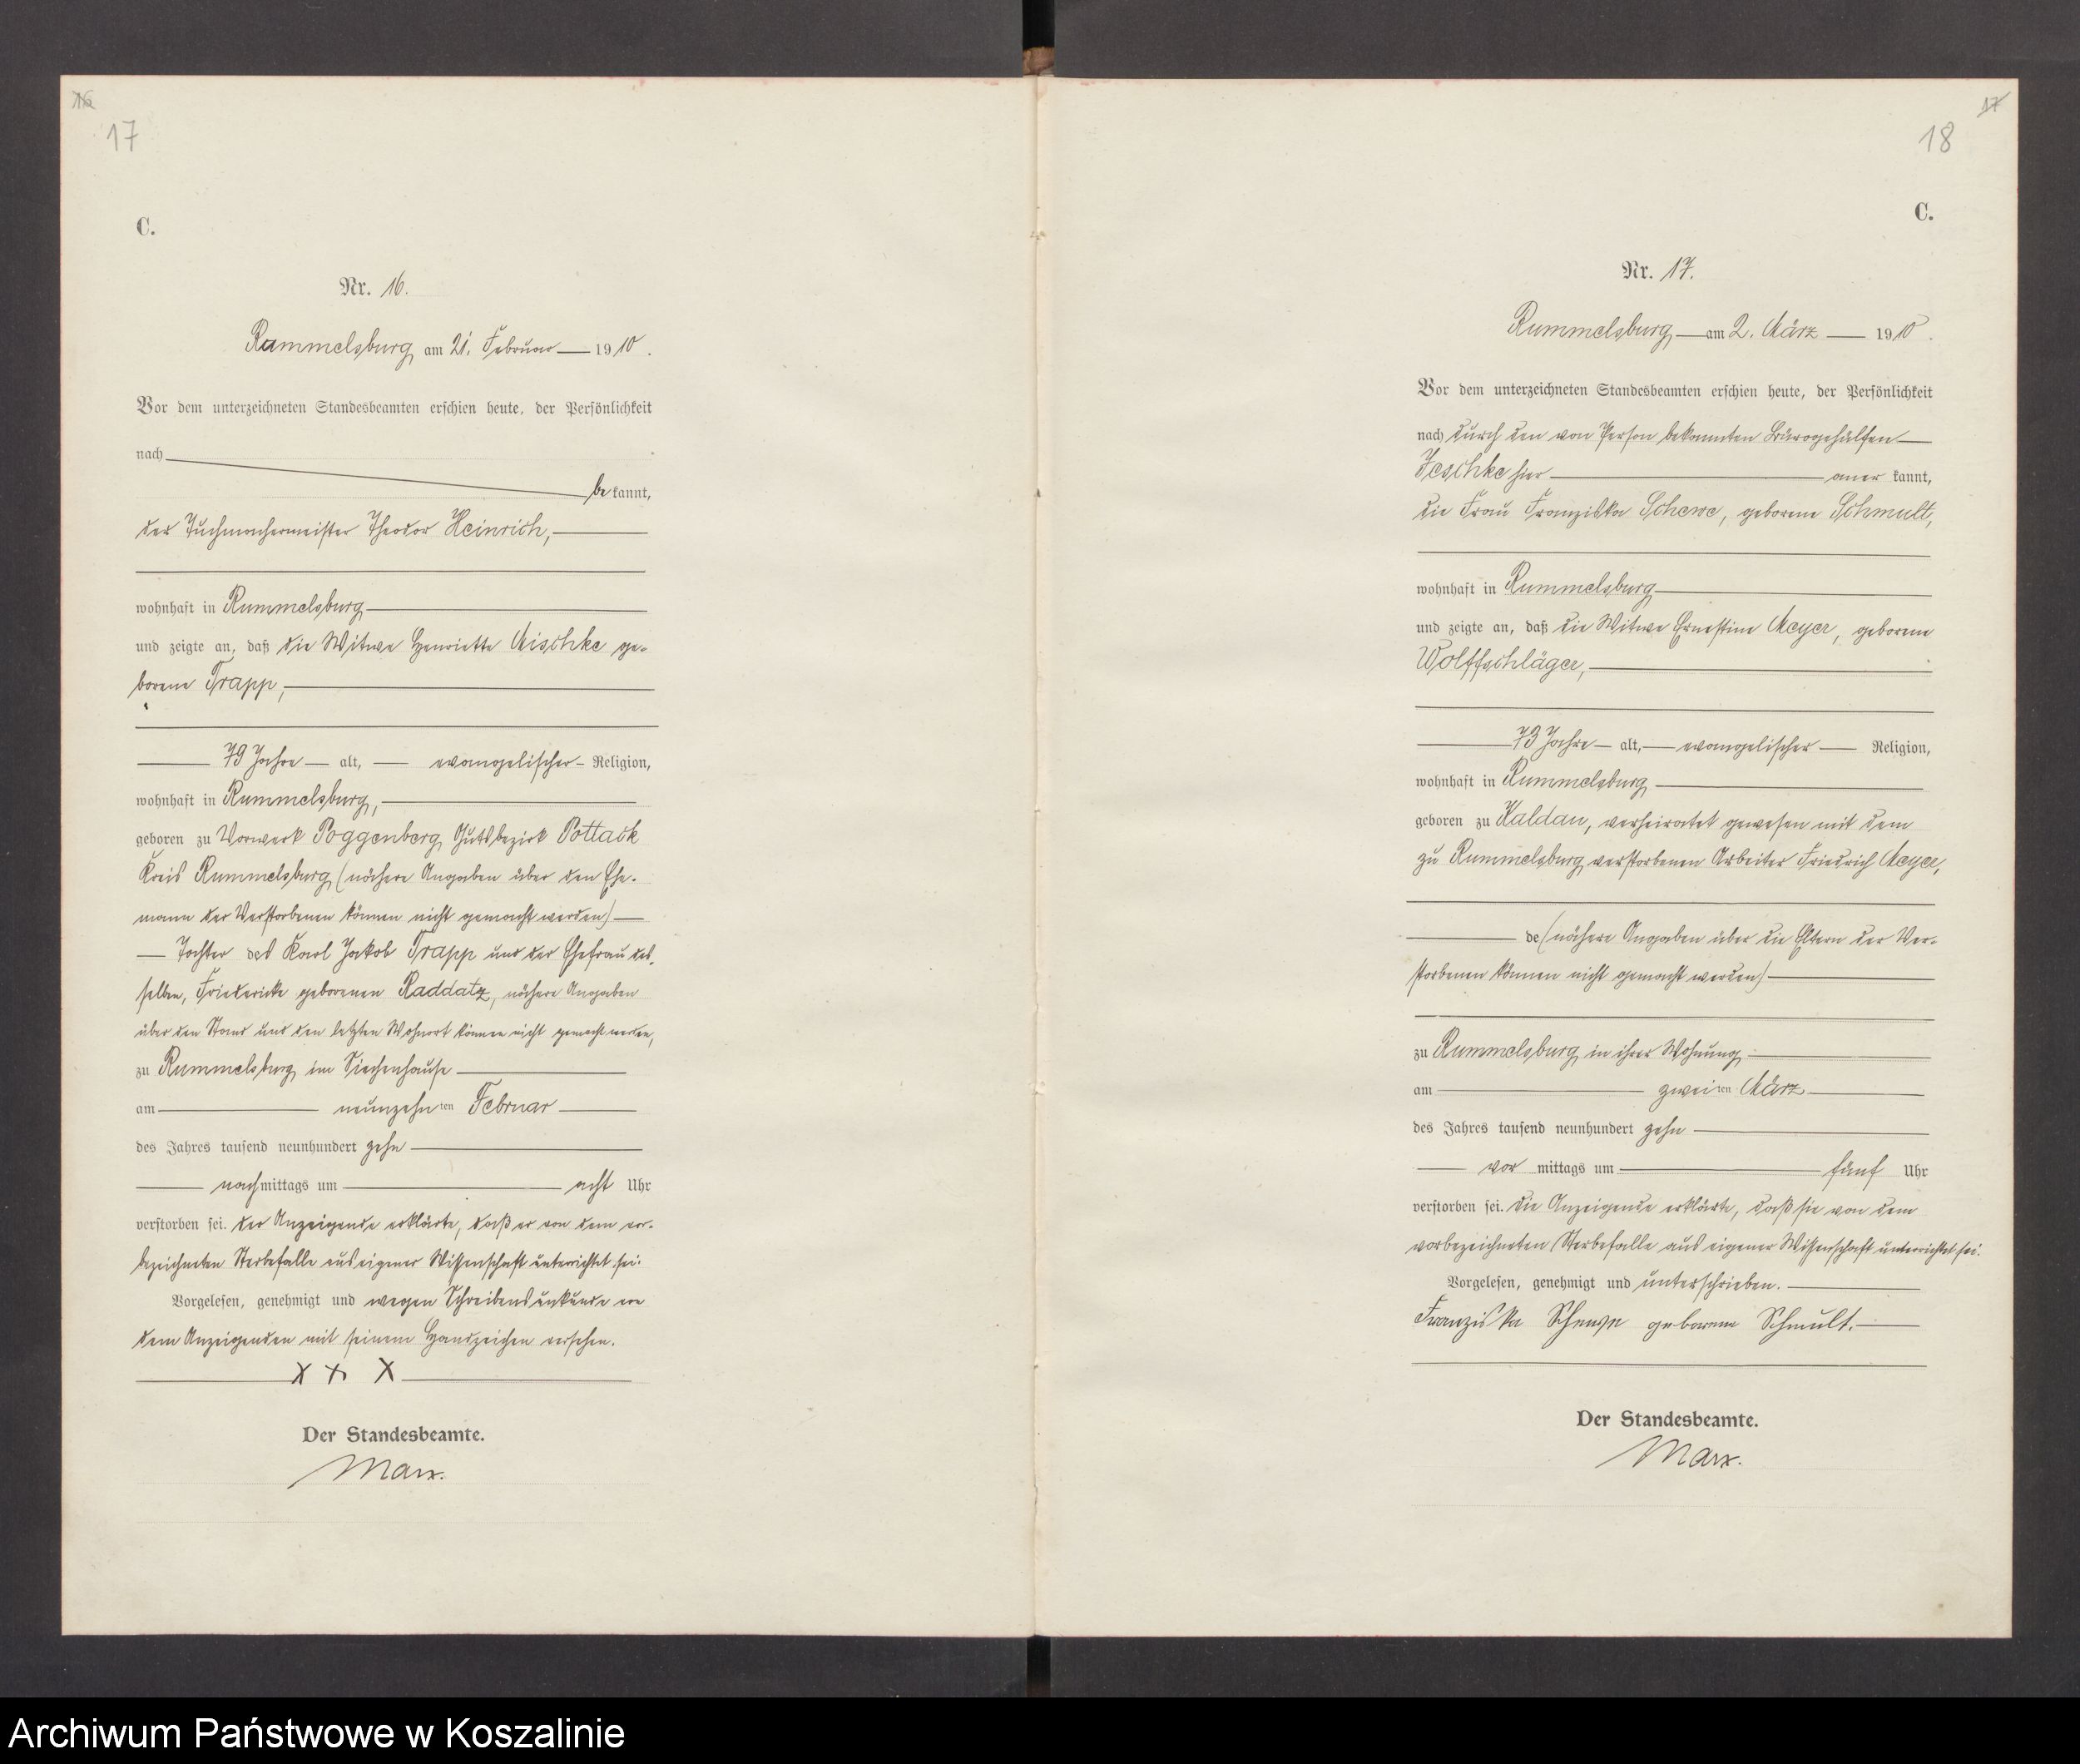 16
17
C.
Nr. 16.
Rummelsburg am 21. Februar 1910.
Vor dem unterzeichneten Standesbeamten erschien heute, der Persönlichkeit
nach
bekannt,
der Tuchmachermeister Theodor Heinrich,
wohnhaft in Rummelsburg
und zeigte an, daß die Witwe Henriette Mischke ge-
borene Trapp,
79 Jahre alt, evangelischer Religion,
wohnhaft in Rummelsburg,
geboren zu Vorwerk Poggenberg Gutsbezirk Pottack
Kreis Rummelsburg (nähere Angaben über den Ehe-
mann der Verstorbenen können nicht gemacht werden)
Tochter des Karl Jakob Trapp und der Ehefrau des-
selben, Friedericke geborenen Raddatz, nähere Angaben
über den Stand und den letzten Wohnort können nicht gemacht werden,
zu Rummelsburg im Siechenhause
am neunzehnten Februar
des Jahres tausend neunhundert zehn
nachmittags um acht Uhr
verstorben sei. Der Anzeigende erklärte, daß er von dem vor-
bezeichneten Sterbefalle aus eigener Wissenschaft unterrichtet sei.
Vorgelesen, genehmigt und wegen Schreibensunkunde von
dem Anzeigenden mit seinem Handzeichen versehen.
X X X
Der Standesbeamte.
Marx.
17
18
C.
Nr. 17.
Rummelsburg am 2. März 1910.
Vor dem unterzeichneten Standesbeamten erschien heute, der Persönlichkeit
nach durch den von Person bekannten Bürogehülfen
Jeschke hier anerkannt,
die Frau Franziska Schewe, geborene Schmult,
wohnhaft in Rummelsburg
und zeigte an, daß die Witwe Ernestine Meyer, geborene
Wolffschläger,
73 Jahre alt, evangelischer Religion,
wohnhaft in Rummelsburg
geboren zu Kaldau, verheiratet gewesen mit dem
zu Rummelsburg verstorbenen Arbeiter Friedrich Meyer,
de (nähere Angaben über die Eltern der Ver-
storbenen können nicht gemacht werden)
zu Rummelsburg in ihrer Wohnung
am zweiten März
des Jahres tausend neunhundert zehn
vormittags um fünf Uhr
verstorben sei. Die Anzeigende erklärte, daß sie von dem
vorbezeichneten Sterbefalle aus eigener Wissenschaft unterrichtet sei.
Vorgelesen, genehmigt und unterschrieben.
Franziska Schewe geborene Schmult.
Der Standesbeamte.
Marx.
Archiwum Państwowe w Koszalinie